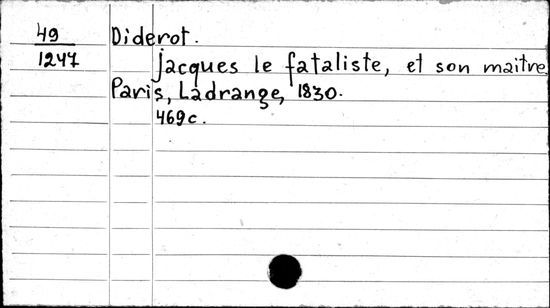 49 Diderot.
1247 Jacques le fataliste, et son maitre
Paris, Ladrange, 1830.
469c.